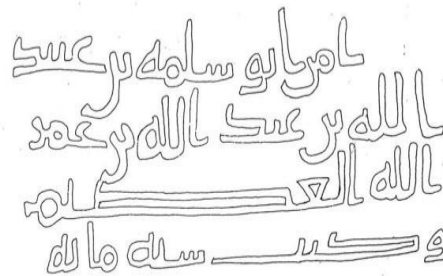 امن ابو سلمه بن عبيد
الله بن عبد الله بن عمر
بالله العظيم
وكتب سنه مايه